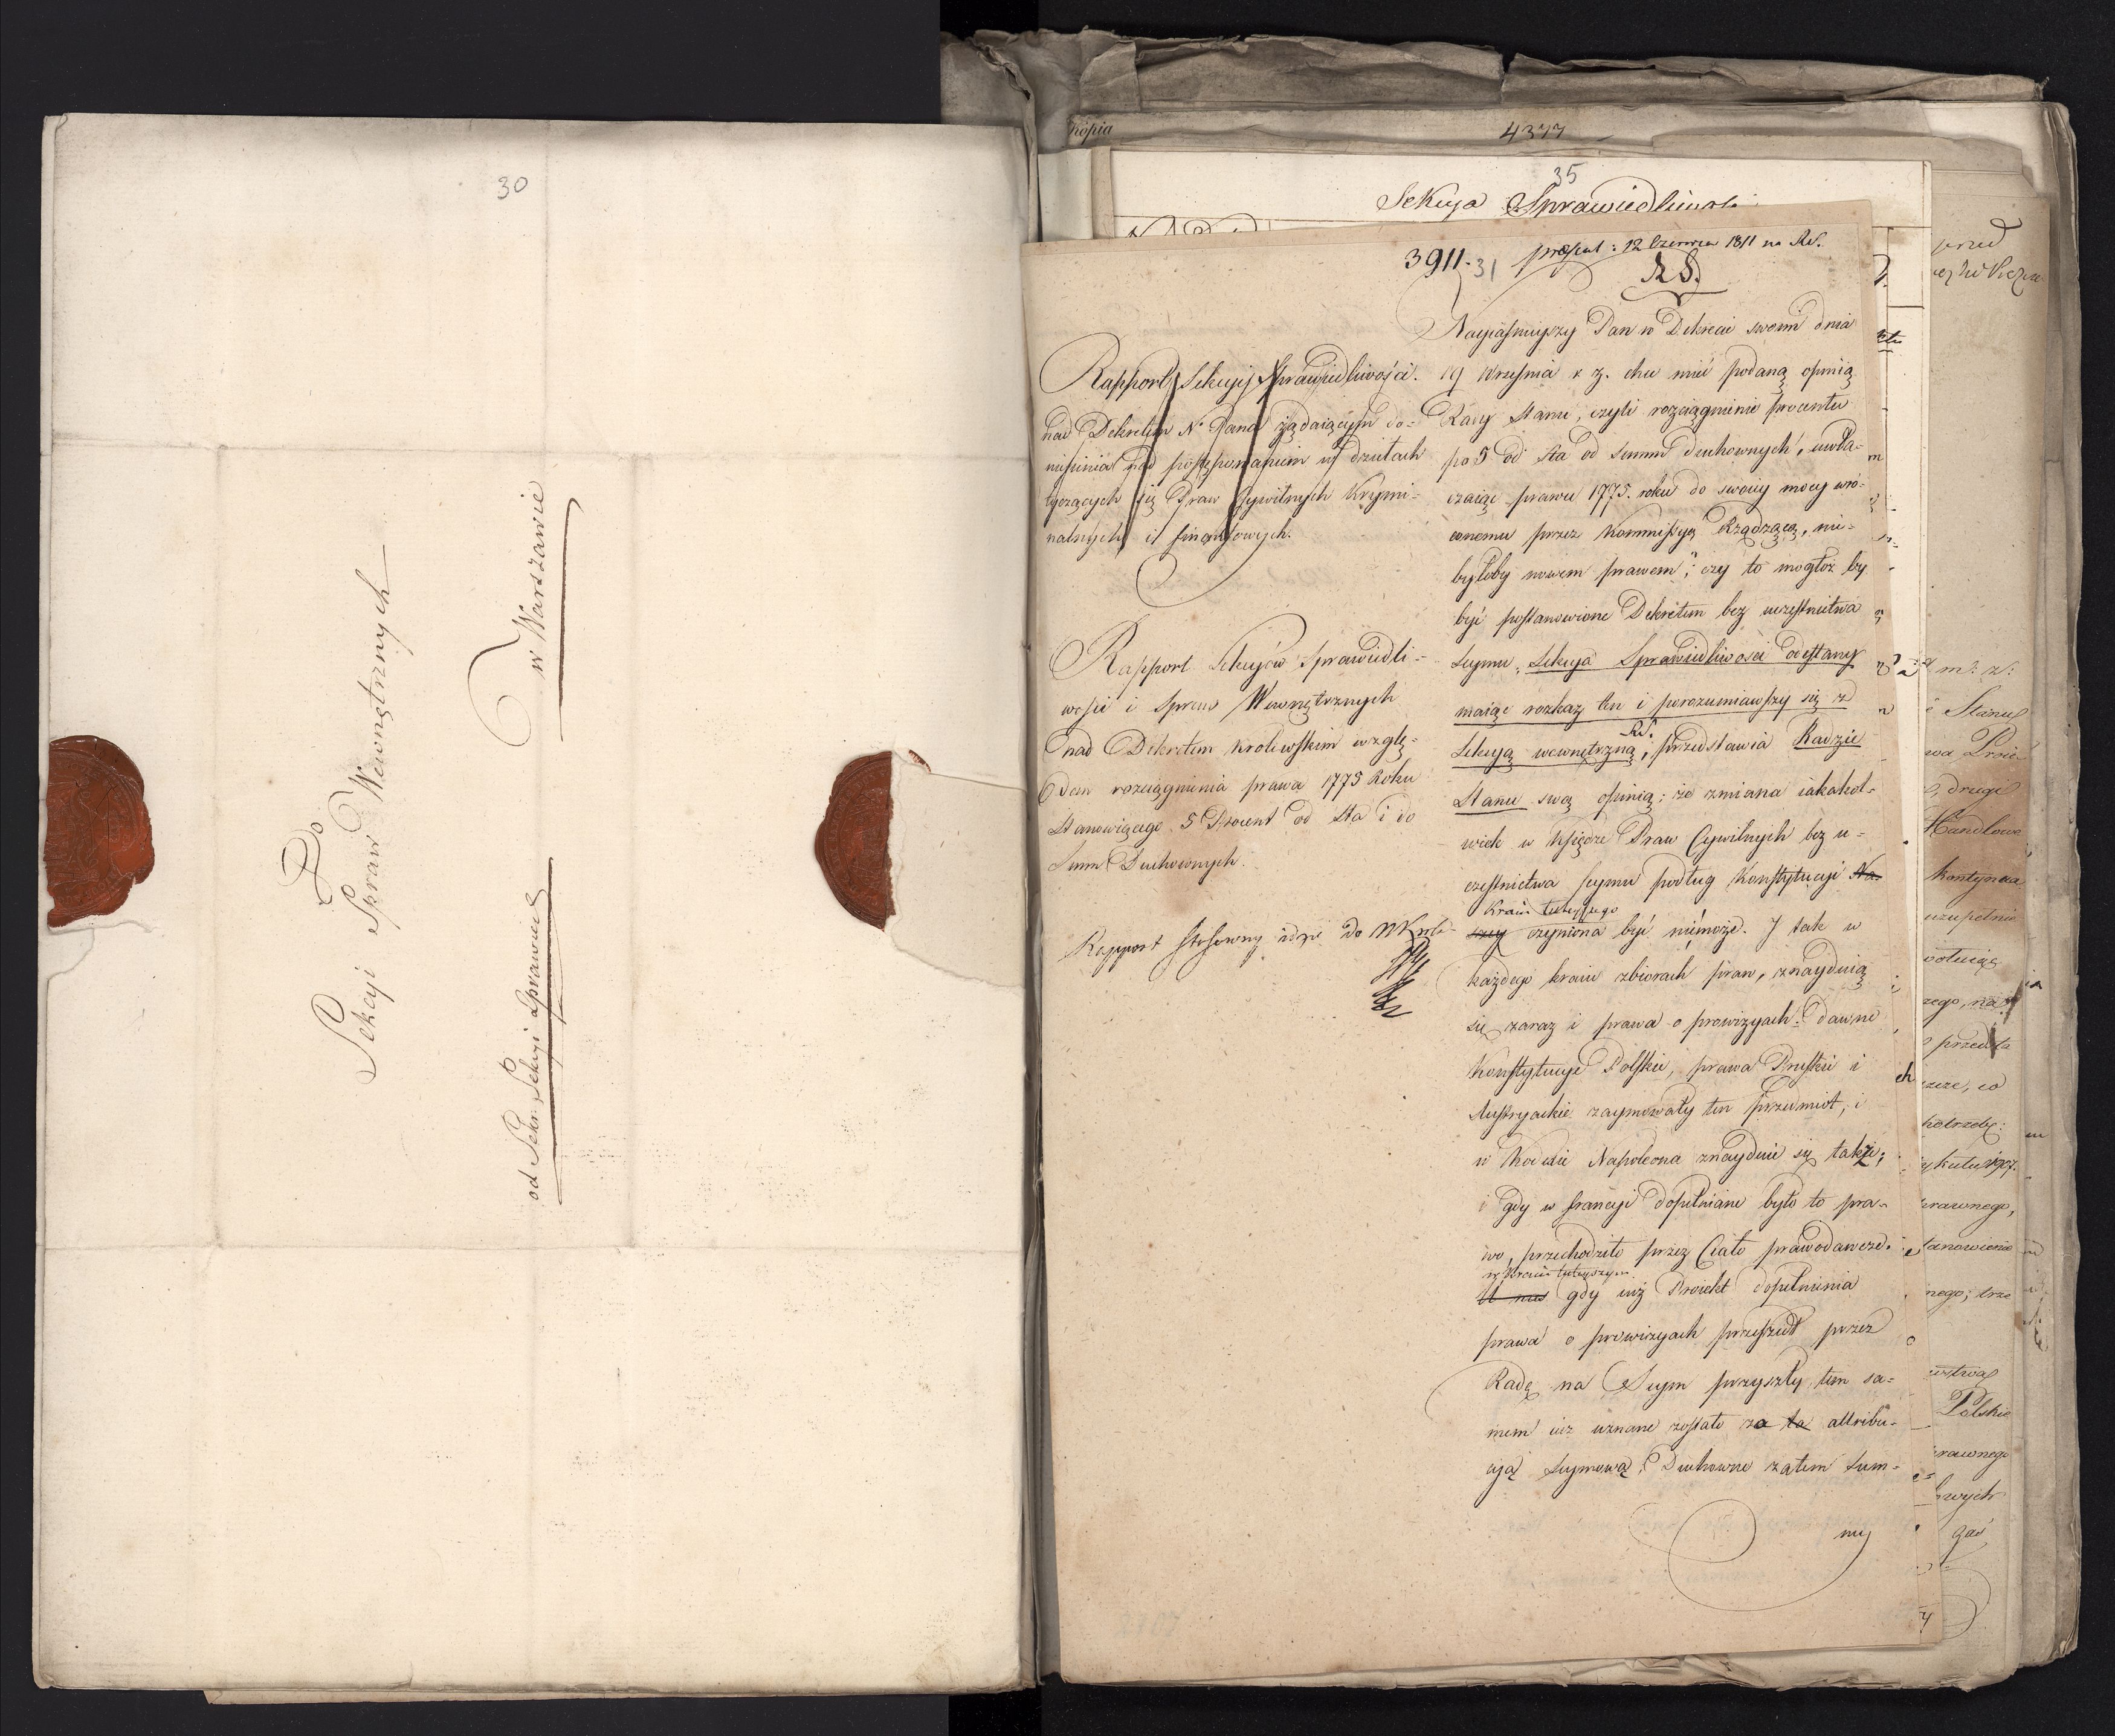 30
Do
Sekcyi Spraw Wewnętrznych
w Warszawie
od Sekr. Sekcyi Sprawied
kopia
4377
35
Sekcya Sprawiedliwości
3911. 31
12 Czerwca 1811 na RS.
RS.
Rapport Sekcyi Sprawiedliwości.
nad Dekretem N. Pana żądaiącym do-
niesienia nad postępowaniem w dziełach
tyczących się Praw Cywilnych Krymi-
nalnych i finansowych.
Rapport Sekcyów Sprawiedli-
wości i Spraw Wewnętrznych
nad Dekretem Krolewskim wzglę-
dem rozciągnienia prawa 1775 Roku
Stanowiącego 5 Procent od Sta i do
Summ Duchownych.
Rapport stosowny idzie do
Nayiaśnieyszy Pan w Dekrecie swoim dnia
19 Września r. z. chce mieć podaną opinią
Rady Stanu, czyli rozciągnienie procentu
po 5 od sta od summ duchownych, uwła-
czaiąc prawu 1775. roku do swoiey mocy wró-
conemu przez Kommissyą Rządzącą, nie-
byłoby nowem prawem; czy to mogłoż by
być postanowione Dekretem bez uczestnictwa
Seymu. Sekcya Sprawiedliwości odesłany
maiąc rozkaz ten i porozumiawszy się z
Sekcyą wewnętrzną, RS. przedstawia Radzie
Stanu swą opinią: że zmiana iakakol-
wiek w Księdze Praw Cywilnych bez u-
czestnictwa Seymu podług Konstytucyi Na-
Kraiu tuteyszego
szey czyniona być niemoże. I tak w
każdego kraiu zbiorach praw, znayduią
się zaraz i prawa o prowizyach: dawne
Konstytucye Polskie, prawa Pruskie i
Austryackie zaymowały ten przedmiot, i
w Kodexie Napoleona znayduie się także;
i gdy w francyi dopełniane było to pra-
wo, przechodziło przez Ciało prawodawcze.
w Kraiu tuteyszym
U nas gdy iuż Proiekt dopełnienia
prawa o prowizyach przeszedł przez
Radę na Seym przyszły, tem sa-
mem iuż uznane zostało za tą attribu-
cyą Seymową. Duchowne zatem sum-
my
przed
Stanu
drugi
Handlowe
zupełnie
potrzebę:
prawnego,
stanowienie
Polskie
prawnego